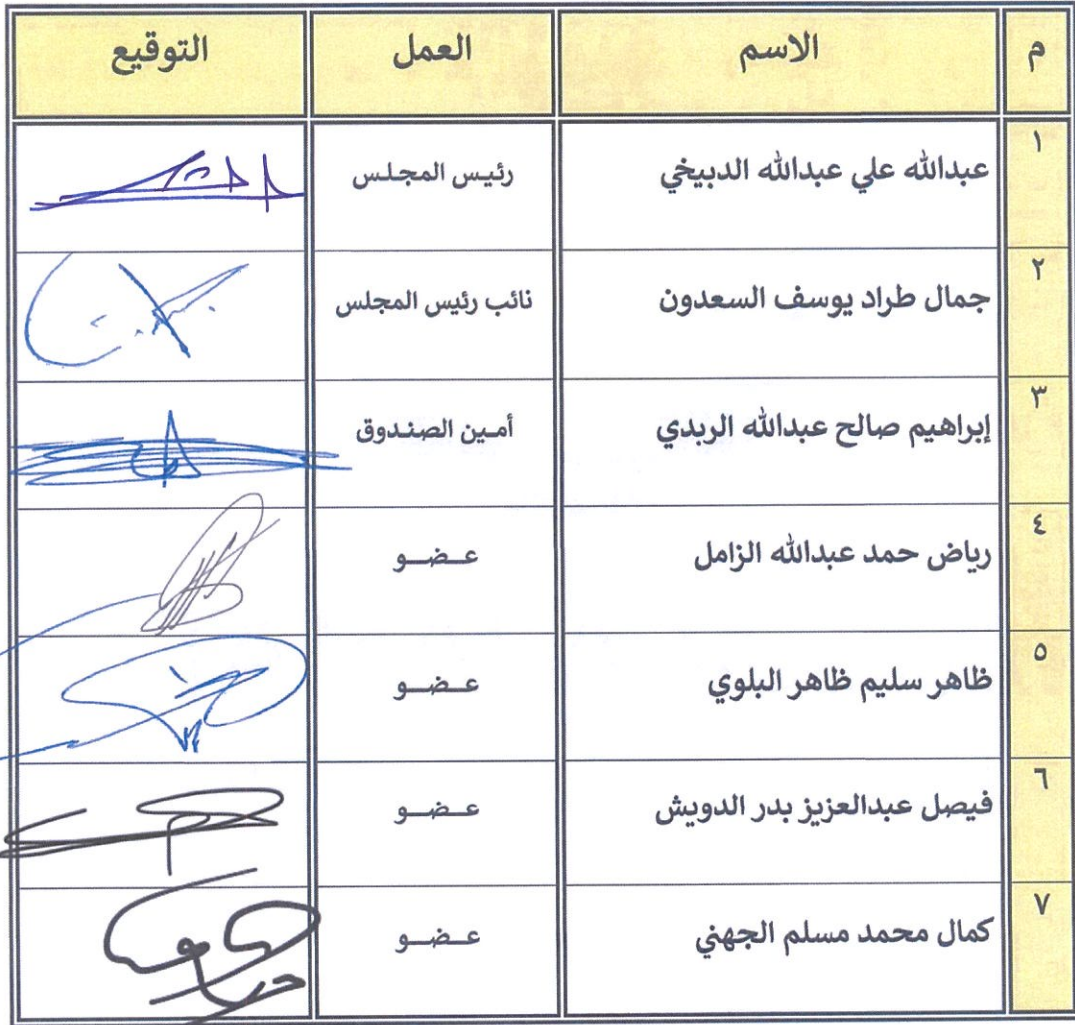 م الاسم العمل التوقيع
١ عبدالله علي عبدالله الدبيخي رئيس المجلس
٢ جمال طراد يوسف السعدون نائب رئيس المجلس
٣ إبراهيم صالح عبدالله الربدي أمين الصندوق
٤ رياض حمد عبدالله الزامل عـضـو
٥ ظاهر سليم ظاهر البلوي عـضـو
٦ فيصل عبدالعزيز بدر الدويش عـضـو
٧ كمال محمد مسلم الجهني عـضـو